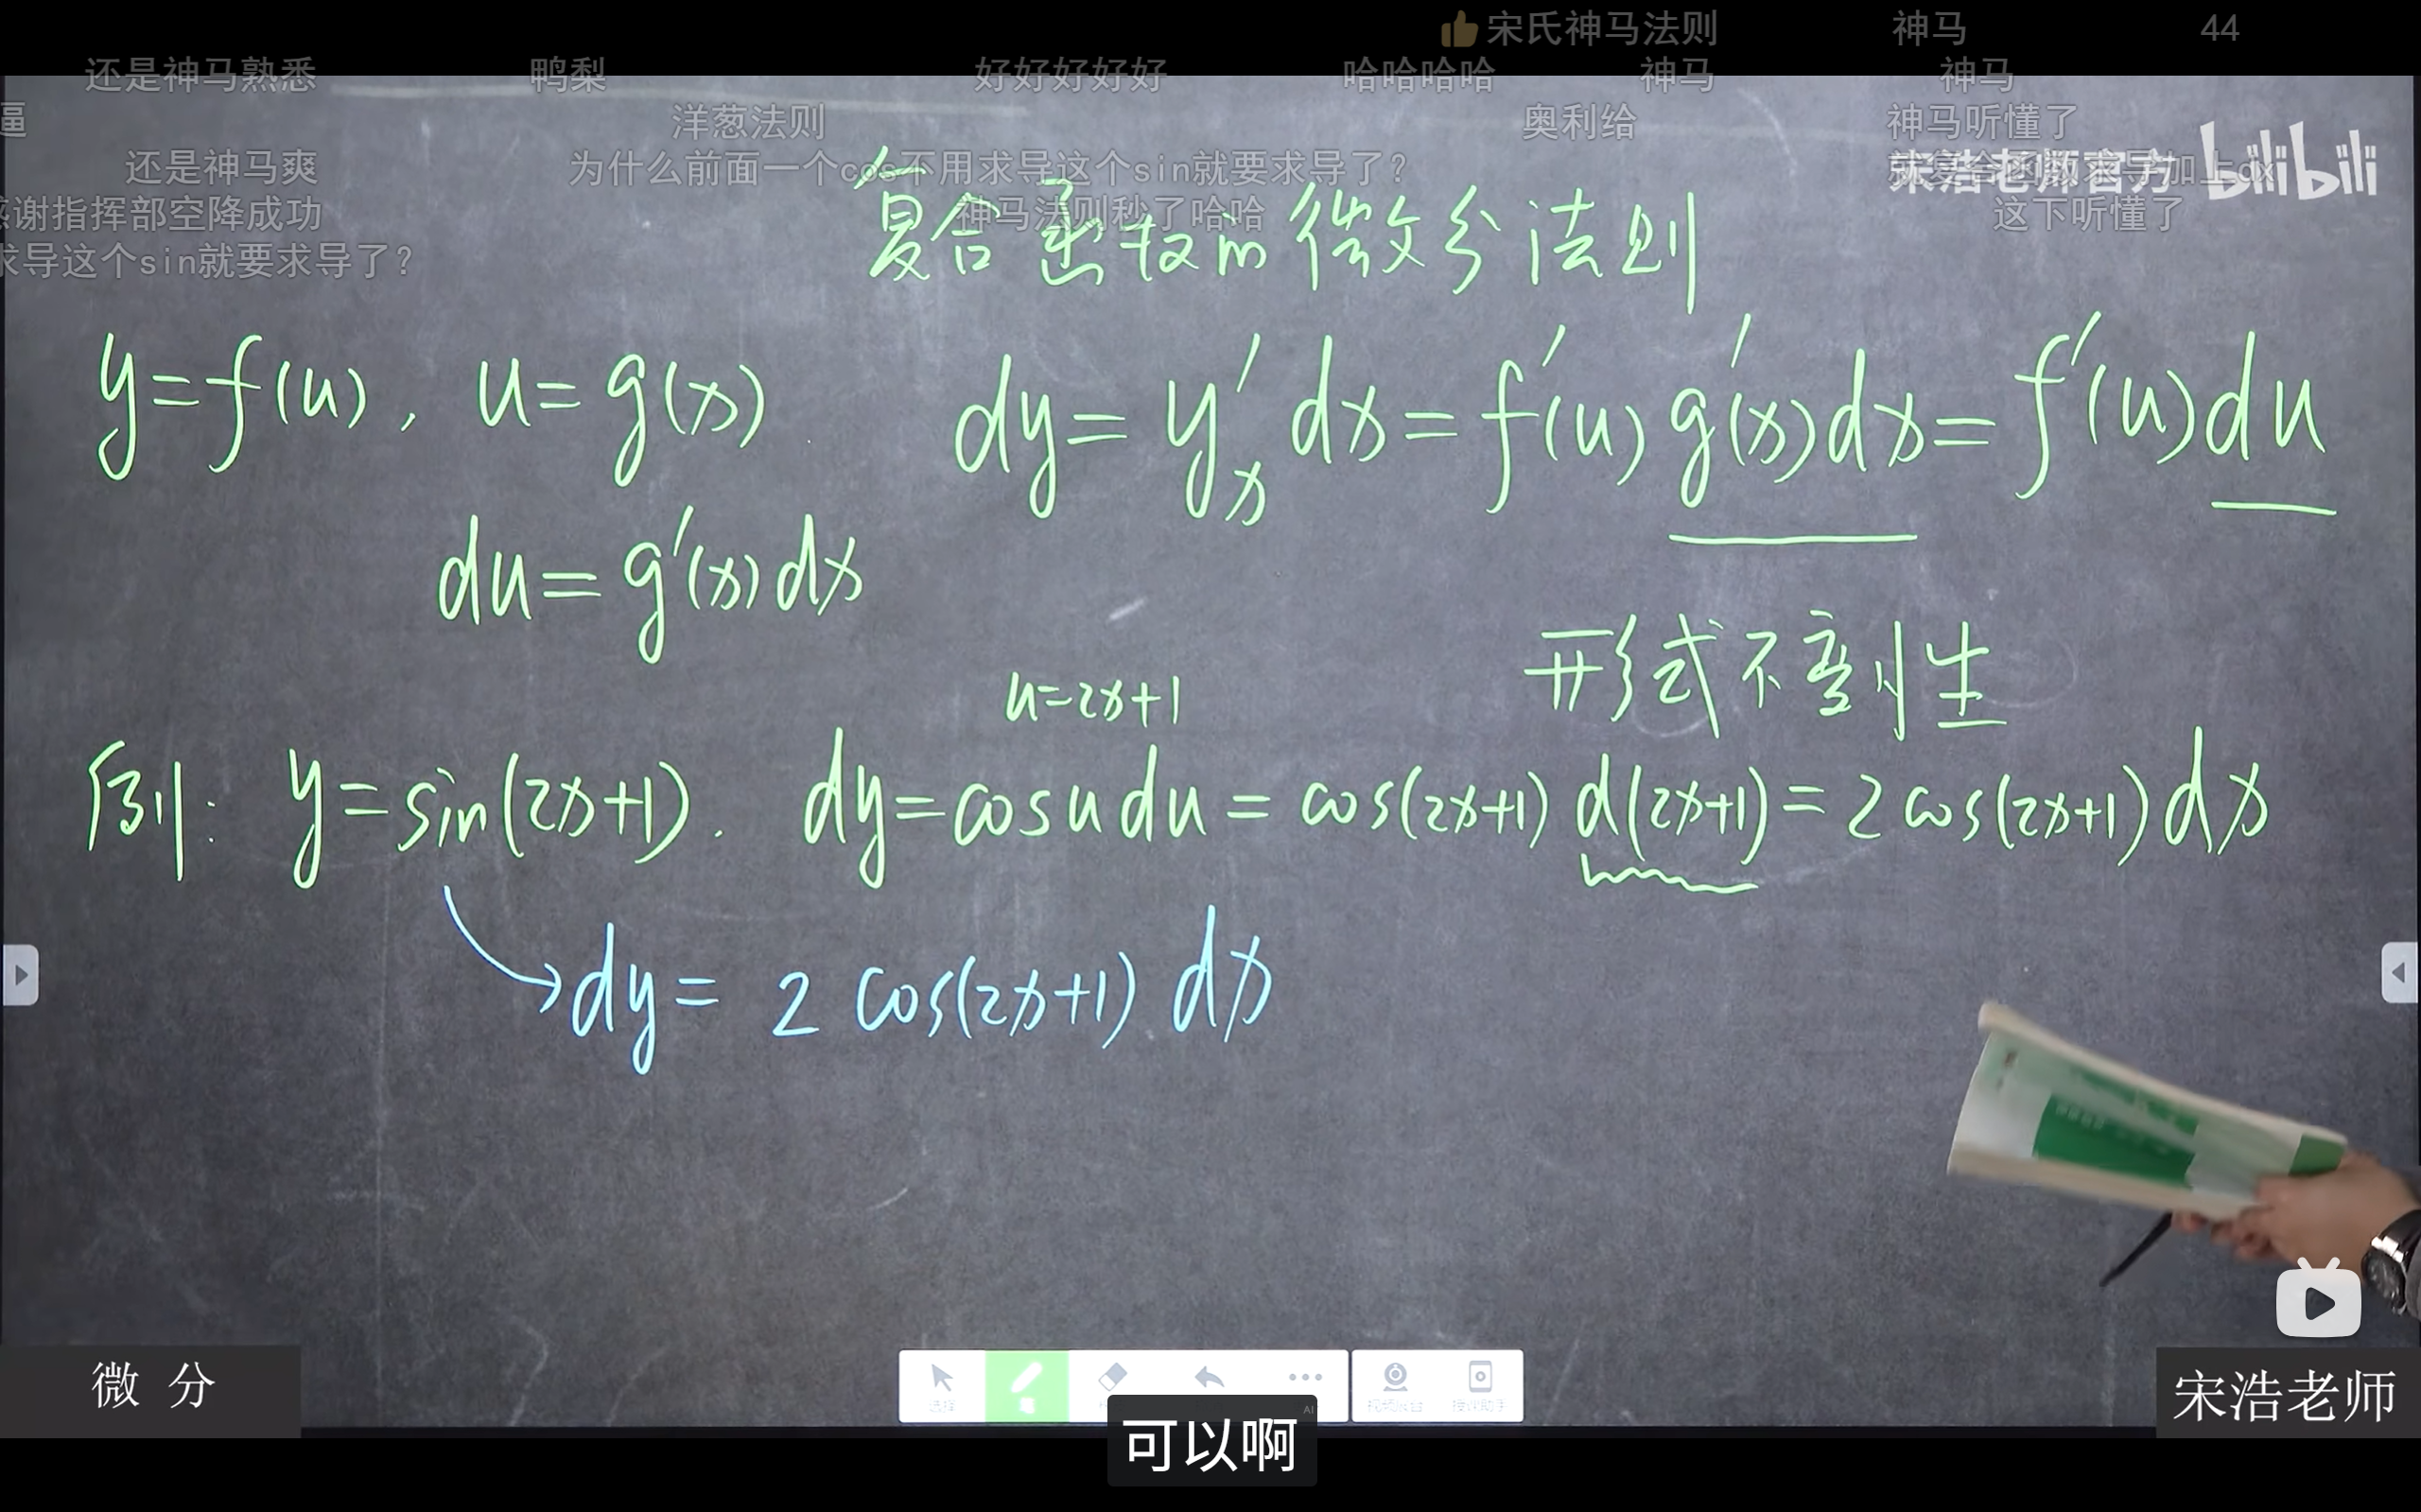 宋氏神马法则 神马 44
还是神马熟悉 鸭梨 好好好好好 哈哈哈哈 神马 神马
逼 洋葱法则 奥利给 神马听懂了
还是神马爽 为什么前面一个cos不用求导这个sin就要求导了？ 宋浩老师官方 bilibili
感谢指挥部空降成功 神马法则秒了哈哈 这下听懂了
求导这个sin就要求导了？
复合函数的微分法则
y=f(u), u=g(x). dy=y'ₓdx=f'(u)g'(x)dx=f'(u)du
du=g'(x)dx
形式不变性
u=2x+1
例: y=sin(2x+1). dy=cosudu=cos(2x+1)d(2x+1)=2cos(2x+1)dx
dy= 2 cos(2x+1) dx
微 分
选择
宋浩老师
AI
可以啊